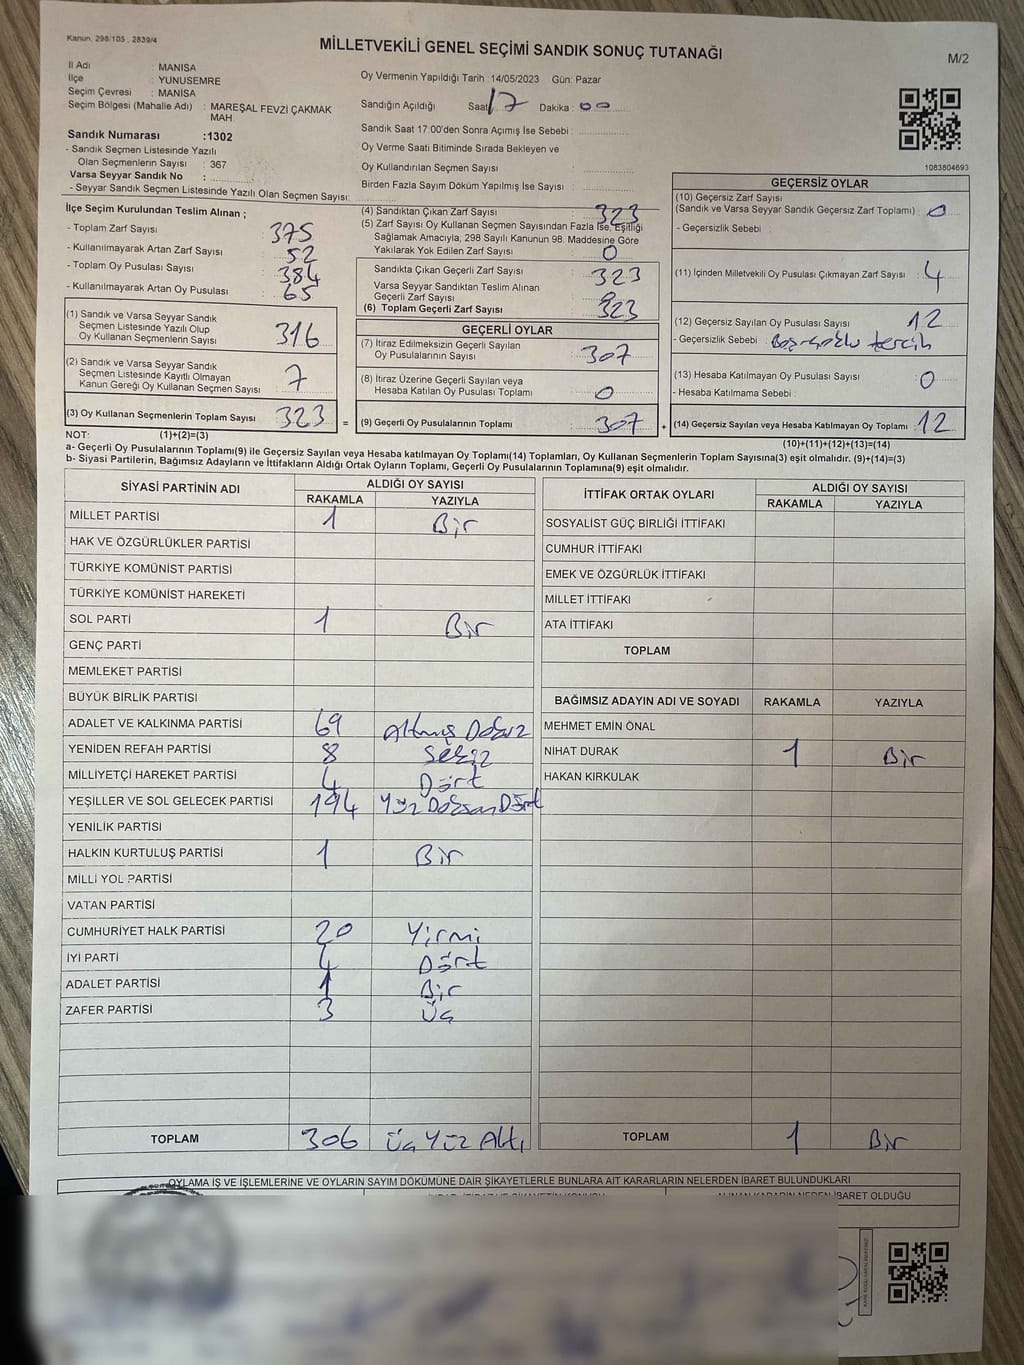 Kanun. 298/105 , 2839/4
MİLLETVEKİLİ GENEL SEÇİMİ SANDIK SONUÇ TUTANAĞI
M/2
İl Adı : MANISA
İlçe : YUNUSEMRE
Seçim Çevresi : MANISA
Seçim Bölgesi (Mahalle Adı) : MAREŞAL FEVZİ ÇAKMAK
MAH
Sandık Numarası :1302
- Sandık Seçmen Listesinde Yazılı
Olan Seçmenlerin Sayısı : 367
Varsa Seyyar Sandık No :
- Seyyar Sandık Seçmen Listesinde Yazılı Olan Seçmen Sayısı:
Oy Vermenin Yapıldığı Tarih :14/05/2023 Gün: Pazar
Sandığın Açıldığı Saat: 17 Dakika : 00
Sandık Saat 17:00'den Sonra Açımış İse Sebebi :
Oy Verme Saati Bitiminde Sırada Bekleyen ve
Oy Kullandırılan Seçmen Sayısı :
Birden Fazla Sayım Döküm Yapılmış İse Sayısı :
1083804693
İlçe Seçim Kurulundan Teslim Alınan ;
- Toplam Zarf Sayısı : 375
- Kullanılmayarak Artan Zarf Sayısı : 52
- Toplam Oy Pusulası Sayısı : 384
- Kullanılmayarak Artan Oy Pusulası : 65
(1) Sandık ve Varsa Seyyar Sandık
Seçmen Listesinde Yazılı Olup
Oy Kullanan Seçmenlerin Sayısı : 316
(2) Sandık ve Varsa Seyyar Sandık
Seçmen Listesinde Kayıtlı Olmayan
Kanun Gereği Oy Kullanan Seçmen Sayısı : 7
(3) Oy Kullanan Seçmenlerin Toplam Sayısı : 323 =
(4) Sandıktan Çıkan Zarf Sayısı : 323
(5) Zarf Sayısı Oy Kullanan Seçmen Sayısından Fazla İse, Eşitliği
Sağlamak Amacıyla, 298 Sayılı Kanunun 98. Maddesine Göre
Yakılarak Yok Edilen Zarf Sayısı : 0
Sandıkta Çıkan Geçerli Zarf Sayısı : 323
Varsa Seyyar Sandıktan Teslim Alınan
Geçerli Zarf Sayısı : 0
(6) Toplam Geçerli Zarf Sayısı : 323
GEÇERLİ OYLAR
(7) İtiraz Edilmeksizin Geçerli Sayılan
Oy Pusulalarının Sayısı : 307
(8) İtiraz Üzerine Geçerli Sayılan veya
Hesaba Katılan Oy Pusulası Toplamı : 0
(9) Geçerli Oy Pusulalarının Toplamı : 307 +
GEÇERSİZ OYLAR
(10) Geçersiz Zarf Sayısı
(Sandık ve Varsa Seyyar Sandık Geçersiz Zarf Toplamı) : 0
- Geçersizlik Sebebi :
(11) İçinden Milletvekili Oy Pusulası Çıkmayan Zarf Sayısı : 4
(12) Geçersiz Sayılan Oy Pusulası Sayısı : 12
- Geçersizlik Sebebi : tercih
(13) Hesaba Katılmayan Oy Pusulası Sayısı : 0
- Hesaba Katılmama Sebebi :
(14) Geçersiz Sayılan veya Hesaba Katılmayan Oy Toplamı : 12
NOT: (1)+(2)=(3)
(10)+(11)+(12)+(13)=(14)
a- Geçerli Oy Pusulalarının Toplamı(9) ile Geçersiz Sayılan veya Hesaba katılmayan Oy Toplamı(14) Toplamları, Oy Kullanan Seçmenlerin Toplam Sayısına(3) eşit olmalıdır. (9)+(14)=(3)
b- Siyasi Partilerin, Bağımsız Adayların ve İttifakların Aldığı Ortak Oyların Toplamı, Geçerli Oy Pusulalarının Toplamına(9) eşit olmalıdır.
SİYASİ PARTİNİN ADI ALDIĞI OY SAYISI
RAKAMLA YAZIYLA
MİLLET PARTİSİ 1 Bir
HAK VE ÖZGÜRLÜKLER PARTİSİ
TÜRKİYE KOMÜNİST PARTİSİ
TÜRKİYE KOMÜNİST HAREKETİ
SOL PARTİ 1 Bir
GENÇ PARTİ
MEMLEKET PARTİSİ
BÜYÜK BİRLİK PARTİSİ
ADALET VE KALKINMA PARTİSİ 69 Altmış Dokuz
YENİDEN REFAH PARTİSİ 8 Sekiz
MİLLİYETÇİ HAREKET PARTİSİ 4 Dört
YEŞİLLER VE SOL GELECEK PARTİSİ 194 Yüz Doksan Dört
YENİLİK PARTİSİ
HALKIN KURTULUŞ PARTİSİ 1 Bir
MİLLİ YOL PARTİSİ
VATAN PARTİSİ
CUMHURİYET HALK PARTİSİ 20 Yirmi
İYİ PARTİ 4 Dört
ADALET PARTİSİ 1 Bir
ZAFER PARTİSİ 3 Üç
TOPLAM 306 Üç Yüz Altı
İTTİFAK ORTAK OYLARI ALDIĞI OY SAYISI
RAKAMLA YAZIYLA
SOSYALİST GÜÇ BİRLİĞİ İTTİFAKI
CUMHUR İTTİFAKI
EMEK VE ÖZGÜRLÜK İTTİFAKI
MİLLET İTTİFAKI
ATA İTTİFAKI
TOPLAM
BAĞIMSIZ ADAYIN ADI VE SOYADI RAKAMLA YAZIYLA
MEHMET EMİN ÖNAL
NİHAT DURAK 1 Bir
HAKAN KIRKULAK
TOPLAM 1 Bir
OYLAMA İŞ VE İŞLEMLERİNE VE OYLARIN SAYIM DÖKÜMÜNE DAİR ŞİKAYETLERLE BUNLARA AİT KARARLARIN NELERDEN İBARET BULUNDUKLARI
ALINAN KARARIN NEDEN İBARET OLDUĞU